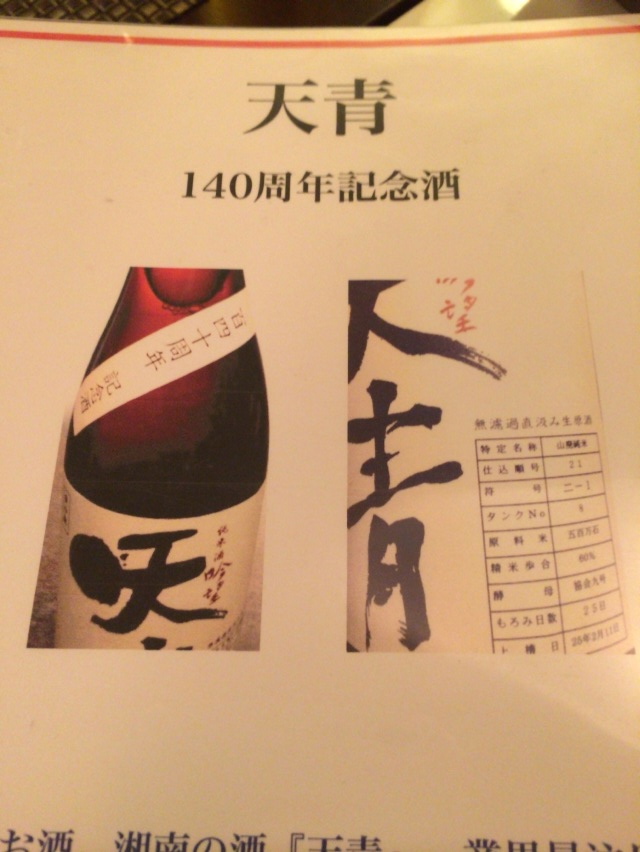 天青
140周年記念酒
百四十周年 記念酒
天
純米酒
天青
無濾過直汲み生原酒
特定名称 山廃純米
仕込順号 21
符号 二-1
タンクNo 8
原料米 五百万石
精米歩合 60%
酵母 協会九号
もろみ日数 25日
上槽日 25年2月12日
お酒 湘南の酒『天青